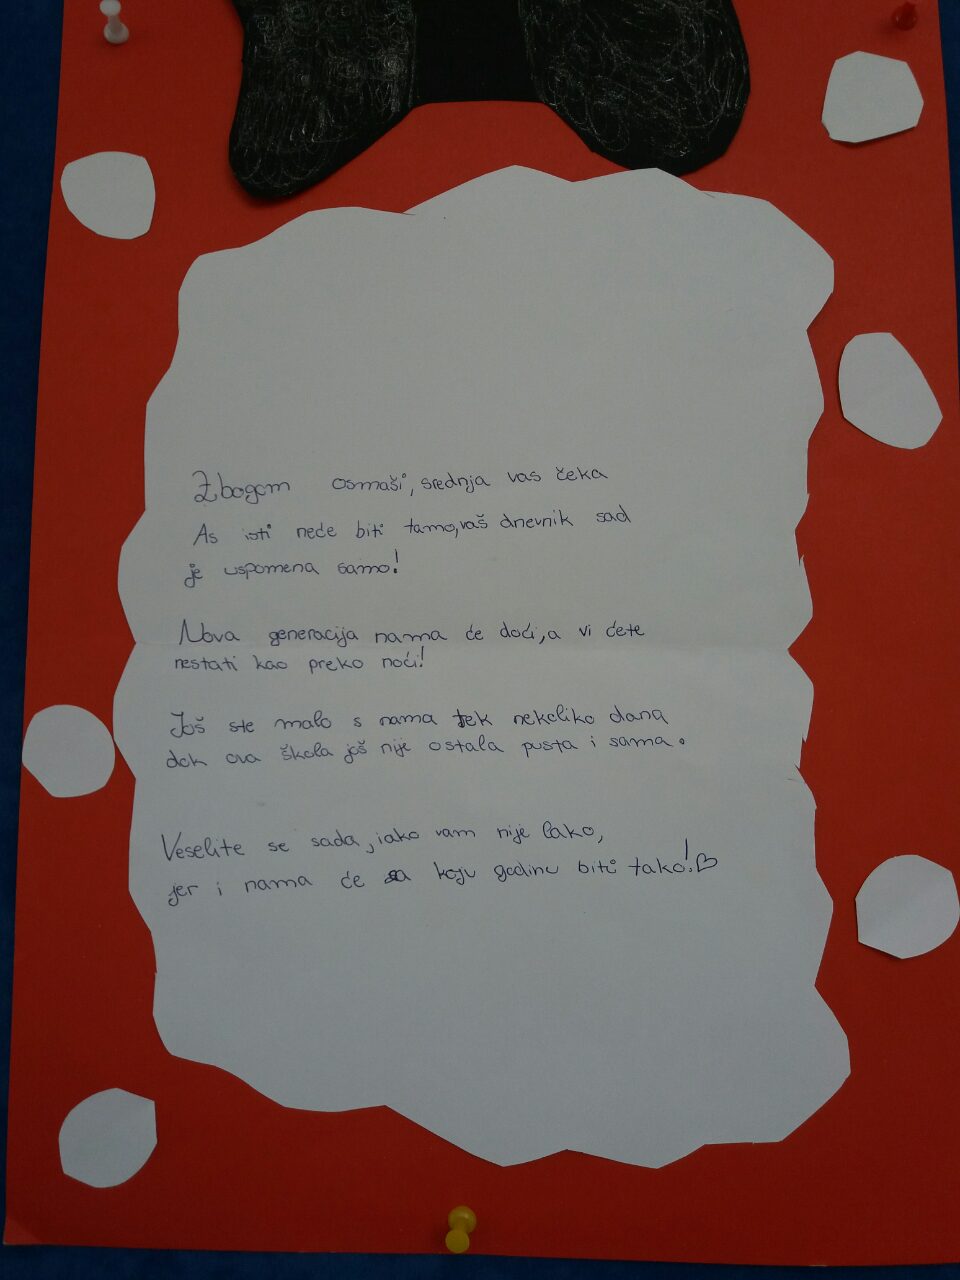 Zbogom osmaši, srednja vas čeka
As isti neće biti tamo, vaš dnevnik sad
je uspomena samo!
Nova generacija nama će doći, a vi ćete
nestati kao preko noći!
Još ste malo s nama tek nekoliko dana
dok ova škola još nije ostala pusta i sama.
Veselite se sada, iako vam nije lako,
jer i nama će za koju godinu biti tako! ♡